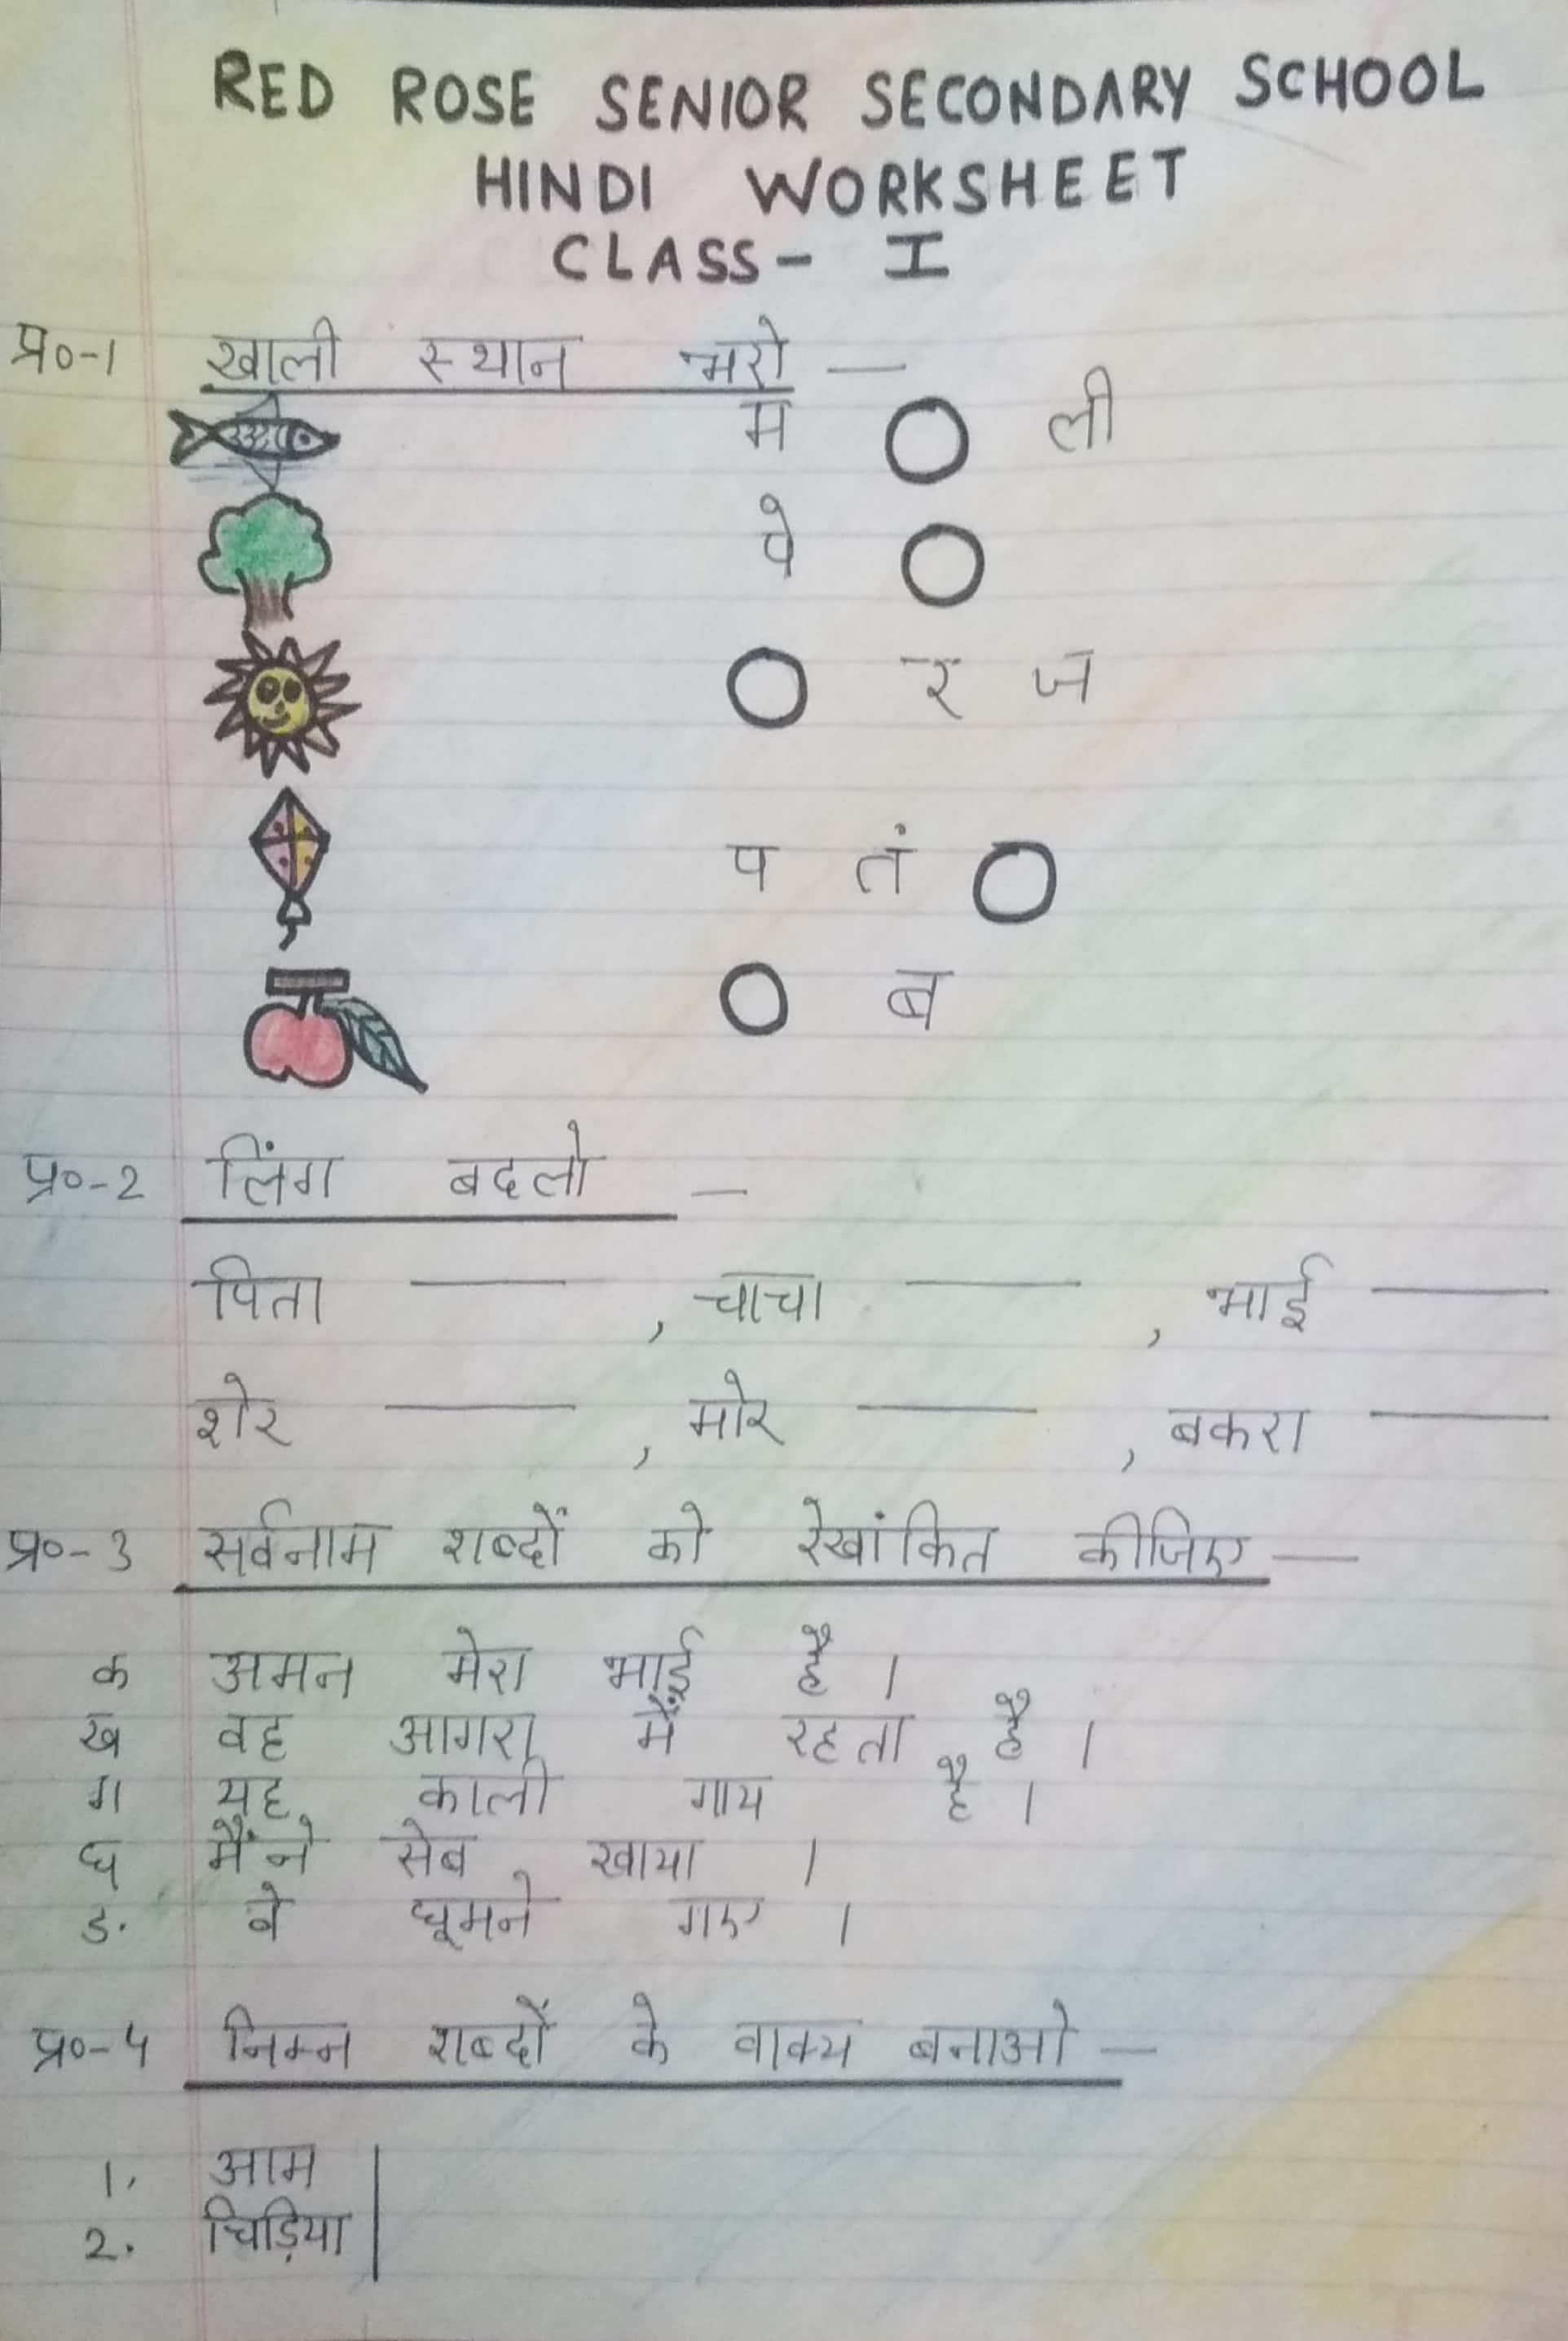 RED ROSE SENIOR SECONDARY SCHOOL
HINDI WORKSHEET
CLASS- I
प्र०-1 खाली स्थान भरो —
म ◯ ली
पे ◯
◯ र ज
प तं ◯
◯ ब
प्र०-2 लिंग बदलो —
पिता ——— , चाचा ——— , भाई ———
शेर ——— , मोर ——— , बकरा ———
प्र०-3 सर्वनाम शब्दों को रेखांकित कीजिए —
क अमन मेरा भाई है ।
ख वह आगरा में रहता है ।
ग यह काली गाय है ।
घ मैंने सेब खाया ।
ड. वे घूमने गए ।
प्र०-4 निम्न शब्दों के वाक्य बनाओ —
1. आम
2. चिड़िया